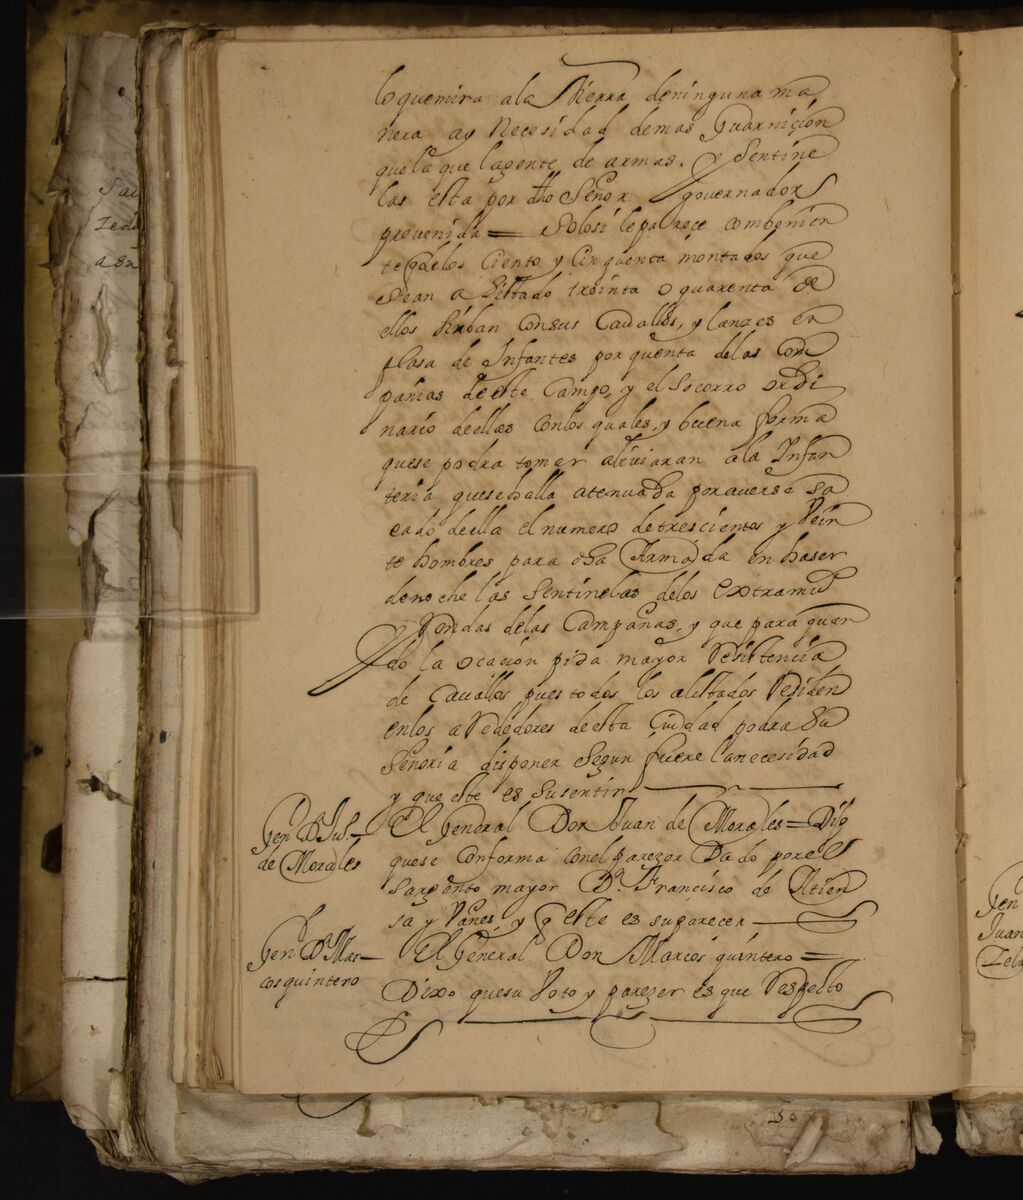 loquemira ala tierra deninguna ma
nera ay Necesidad demas Guarniçion
quela que lagente de armas, y Sentine
las esta por dho Señor governador
prevenida = solosi leparece combenien
te q delos Ciento y Cinquenta montados que
Sean alistado treinta o quarenta de
ellos sirban consus Cavallos, y lanzes en
plasa de Infantes por quenta delas Com
pañias deeste Campo, y el Socorro ordi
nario deellas conlos quales, y buena forma
quese podra tomar aliviaran ala Infan
teria quesehalla atenuada poraverse sa
cado deella el numero detrescientos y Vein
te hombres para dha Armada en haser
denoche las Sentinelas delos extramu
y Rondas delas Campañas, y que para quan
do la ocacion pida mayor Resistencia
de Cavallos pues todos los alistados Residen
enlos aRededores deesta Ciudad podra Su
Señoria disponer Segun fuere lanecesidad
y que este es Susentir
Gen.l D. Ju.o
de Morales
El General Don Juan de Morales = Dijo
quese conforma conel parezer Dado por el
Sargento mayor D.n Francisco de Atien
sa y Vañes, y q este es suparecer
Gen.l D.n Mar
cos quintero
El General Don Marcos quintero =
Dixo quesu Voto y parezer es que Respecto
Gen
Juan